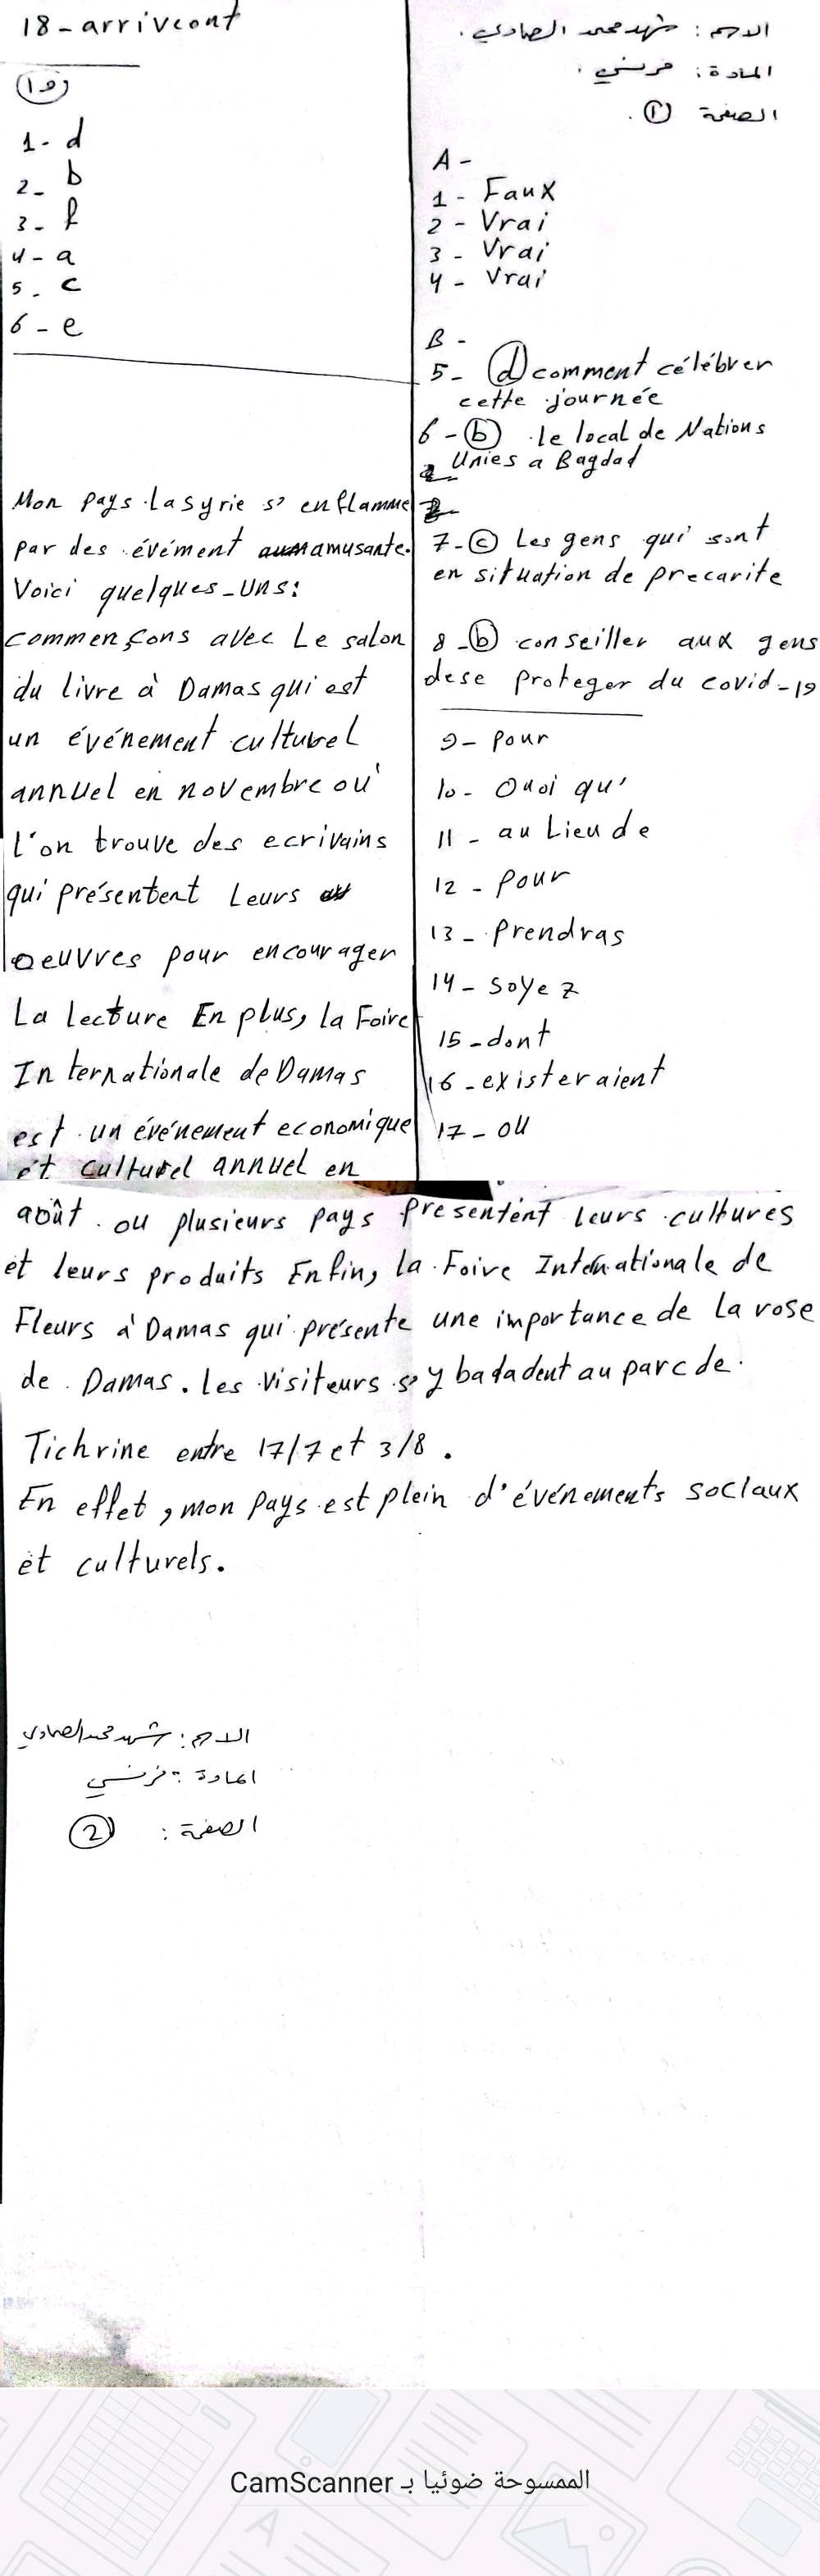 الاسم : شهد محمد الصمادي .
المادة : فرنسي .
الصفحة ① .
A -
1 - Faux
2 - Vrai
3 - Vrai
4 - Vrai
B -
5 - ⓓ comment célébrer
cette journée
6 - ⓑ le local de Nations
Unies a Bagdad
7 - ⓒ Les gens qui sont
en situation de precarite
8 - ⓑ conseiller aux gens
dese proteger du covid-19
9 - pour
10 - Quoi qu'
11 - au Lieu de
12 - pour
13 - Prendras
14 - soyez
15 - dont
16 - existeraient
17 - ou
18 - arriveont
(19)
1 - d
2 - b
3 - f
4 - a
5 - c
6 - e
Mon pays La syrie s'enflamme
par des évément amusante.
Voici quelques-uns:
commençons avec Le salon
du livre à Damas qui est
un événement culturel
annuel en novembre où
L'on trouve des ecrivains
qui présentent Leurs
oeuvres pour encourager
La lecture En plus, la Foire
Internationale de Damas
est un événement economique
et culturel annuel en
août ou plusieurs pays presentent leurs cultures
et leurs produits Enfin, la Foire Internationale de
Fleurs à Damas qui présente une importance de La rose
de Damas. Les visiteurs s'y badadent au parc de
Tichrine entre 17/7 et 3/8 .
En effet, mon pays est plein d'événements sociaux
et culturels.
الاسم : شهد محمد الصمادي
المادة : فرنسي
الصفحة : ②
الممسوحة ضوئيا بـ CamScanner